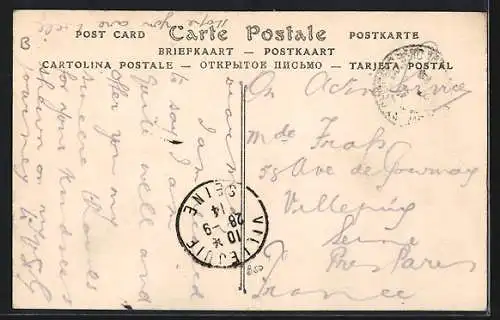 Hope you are well
POST CARD Carte Postale POSTKARTE
BRIEFKAART — POSTKAART
CARTOLINA POSTALE — ОТКРЫТОЕ ПИСЬМО — TARJETA POSTAL
On Active Service
Mde
58 Ave de Gournay
Villejuif
Seine
Pres Paris
France
Dear
I am
to say I am
quite well and
offer you my
sincere thanks
for your kindness
shown on my
journey
VILLEJUIF
10
28 - 9
14
SEINE